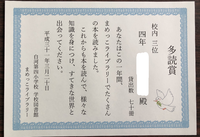 多読賞
校内 三位
四年　　　殿
貸出数 七十冊
あなたはこの一年間、
まめっこライブラリーでたくさん
の本を読みました。
これからも本を読んで、様々な
知識を身につけ、すてきな世界と
出会ってください。
平成三十一年三月二十日
白河第四小学校 学校図書館
まめっこライブラリー